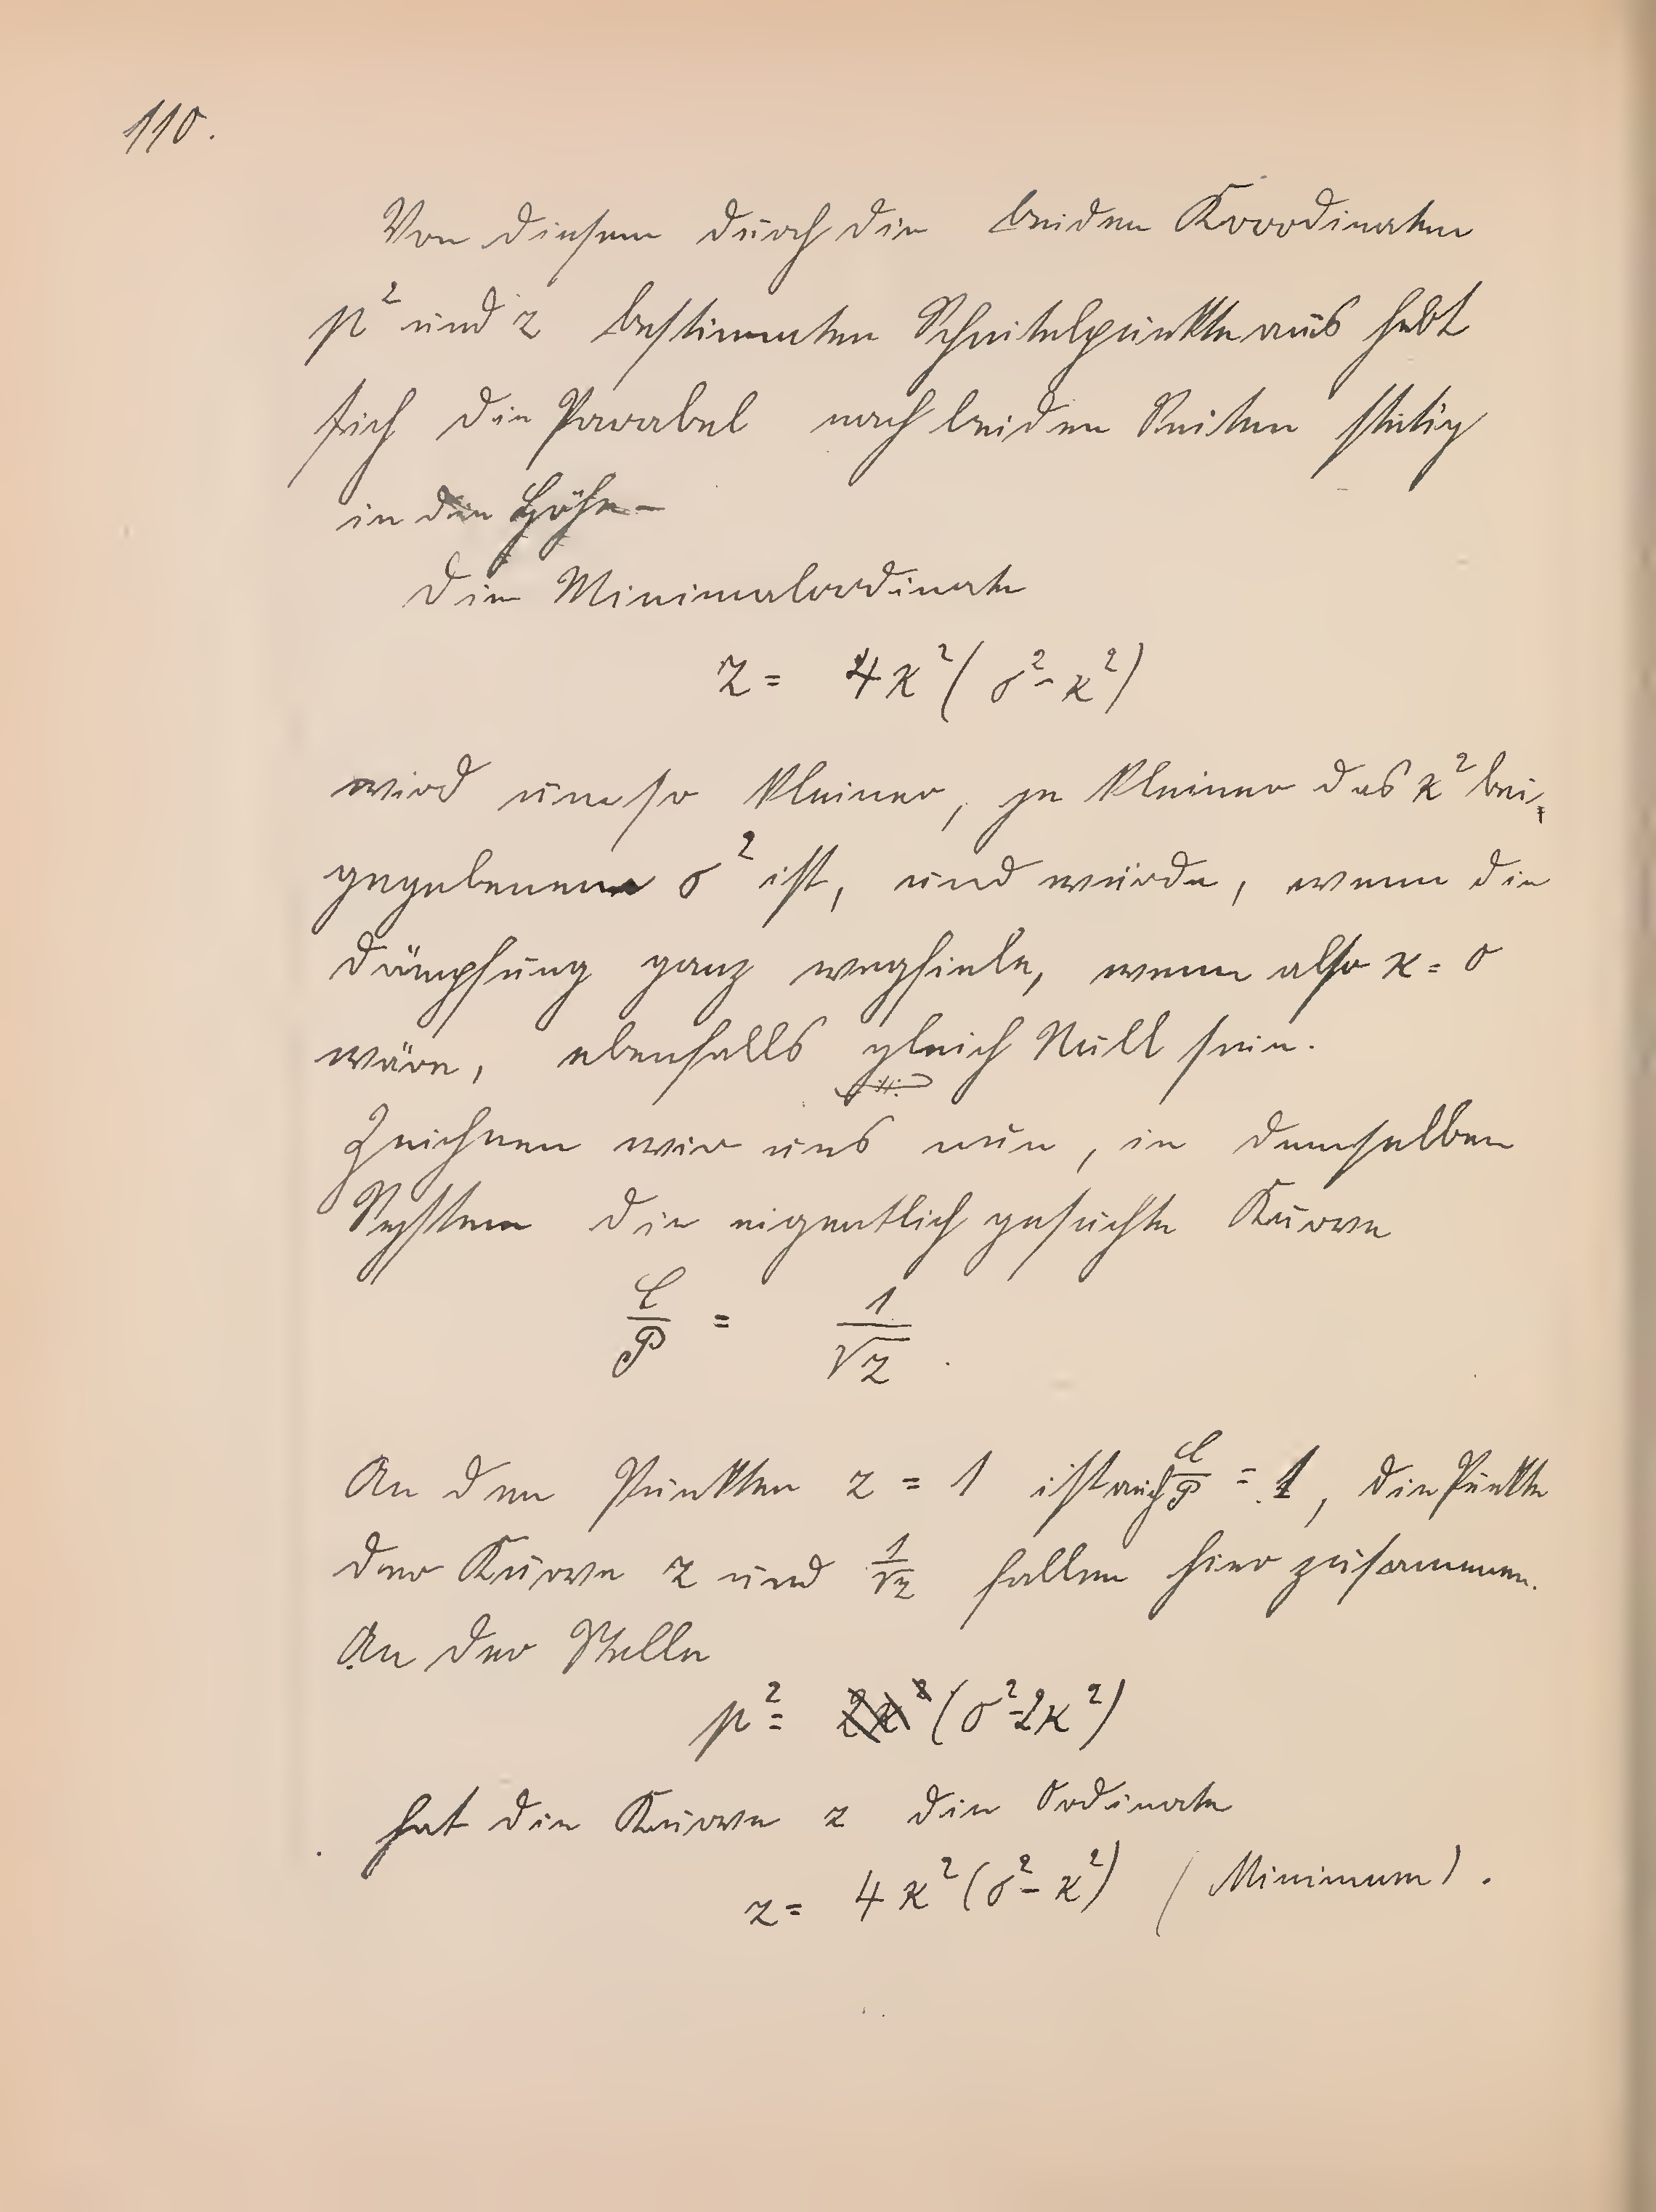 110.
Von diesem durch die beiden Koordinaten
p² und z bestimmten Scheitelpunkte aus hebt
sich die Parabel nach beiden Seiten stetig
in die Höhe –
Die Minimalordinate
z = 4κ²(σ² - κ²)
wird umso kleiner, je kleiner das κ² bei
gegebenem σ² ist, und würde, wenn die
Dämpfung ganz wegfiele, wenn also κ = 0
wäre, ebenfalls gleich Null sein.
Zeichnen wir uns nun, in demselben
System die eigentlich gesuchte Kurve
C/P = 1/√z .
An den Punkten z = 1 ist auch C/P = 1, die Punkte
der Kurve z und 1/√z fallen hier zusammen.
An der Stelle
p² = (σ² - 2κ²)
hat die Kurve z die Ordinate
z = 4κ²(σ² - κ²) (Minimum).